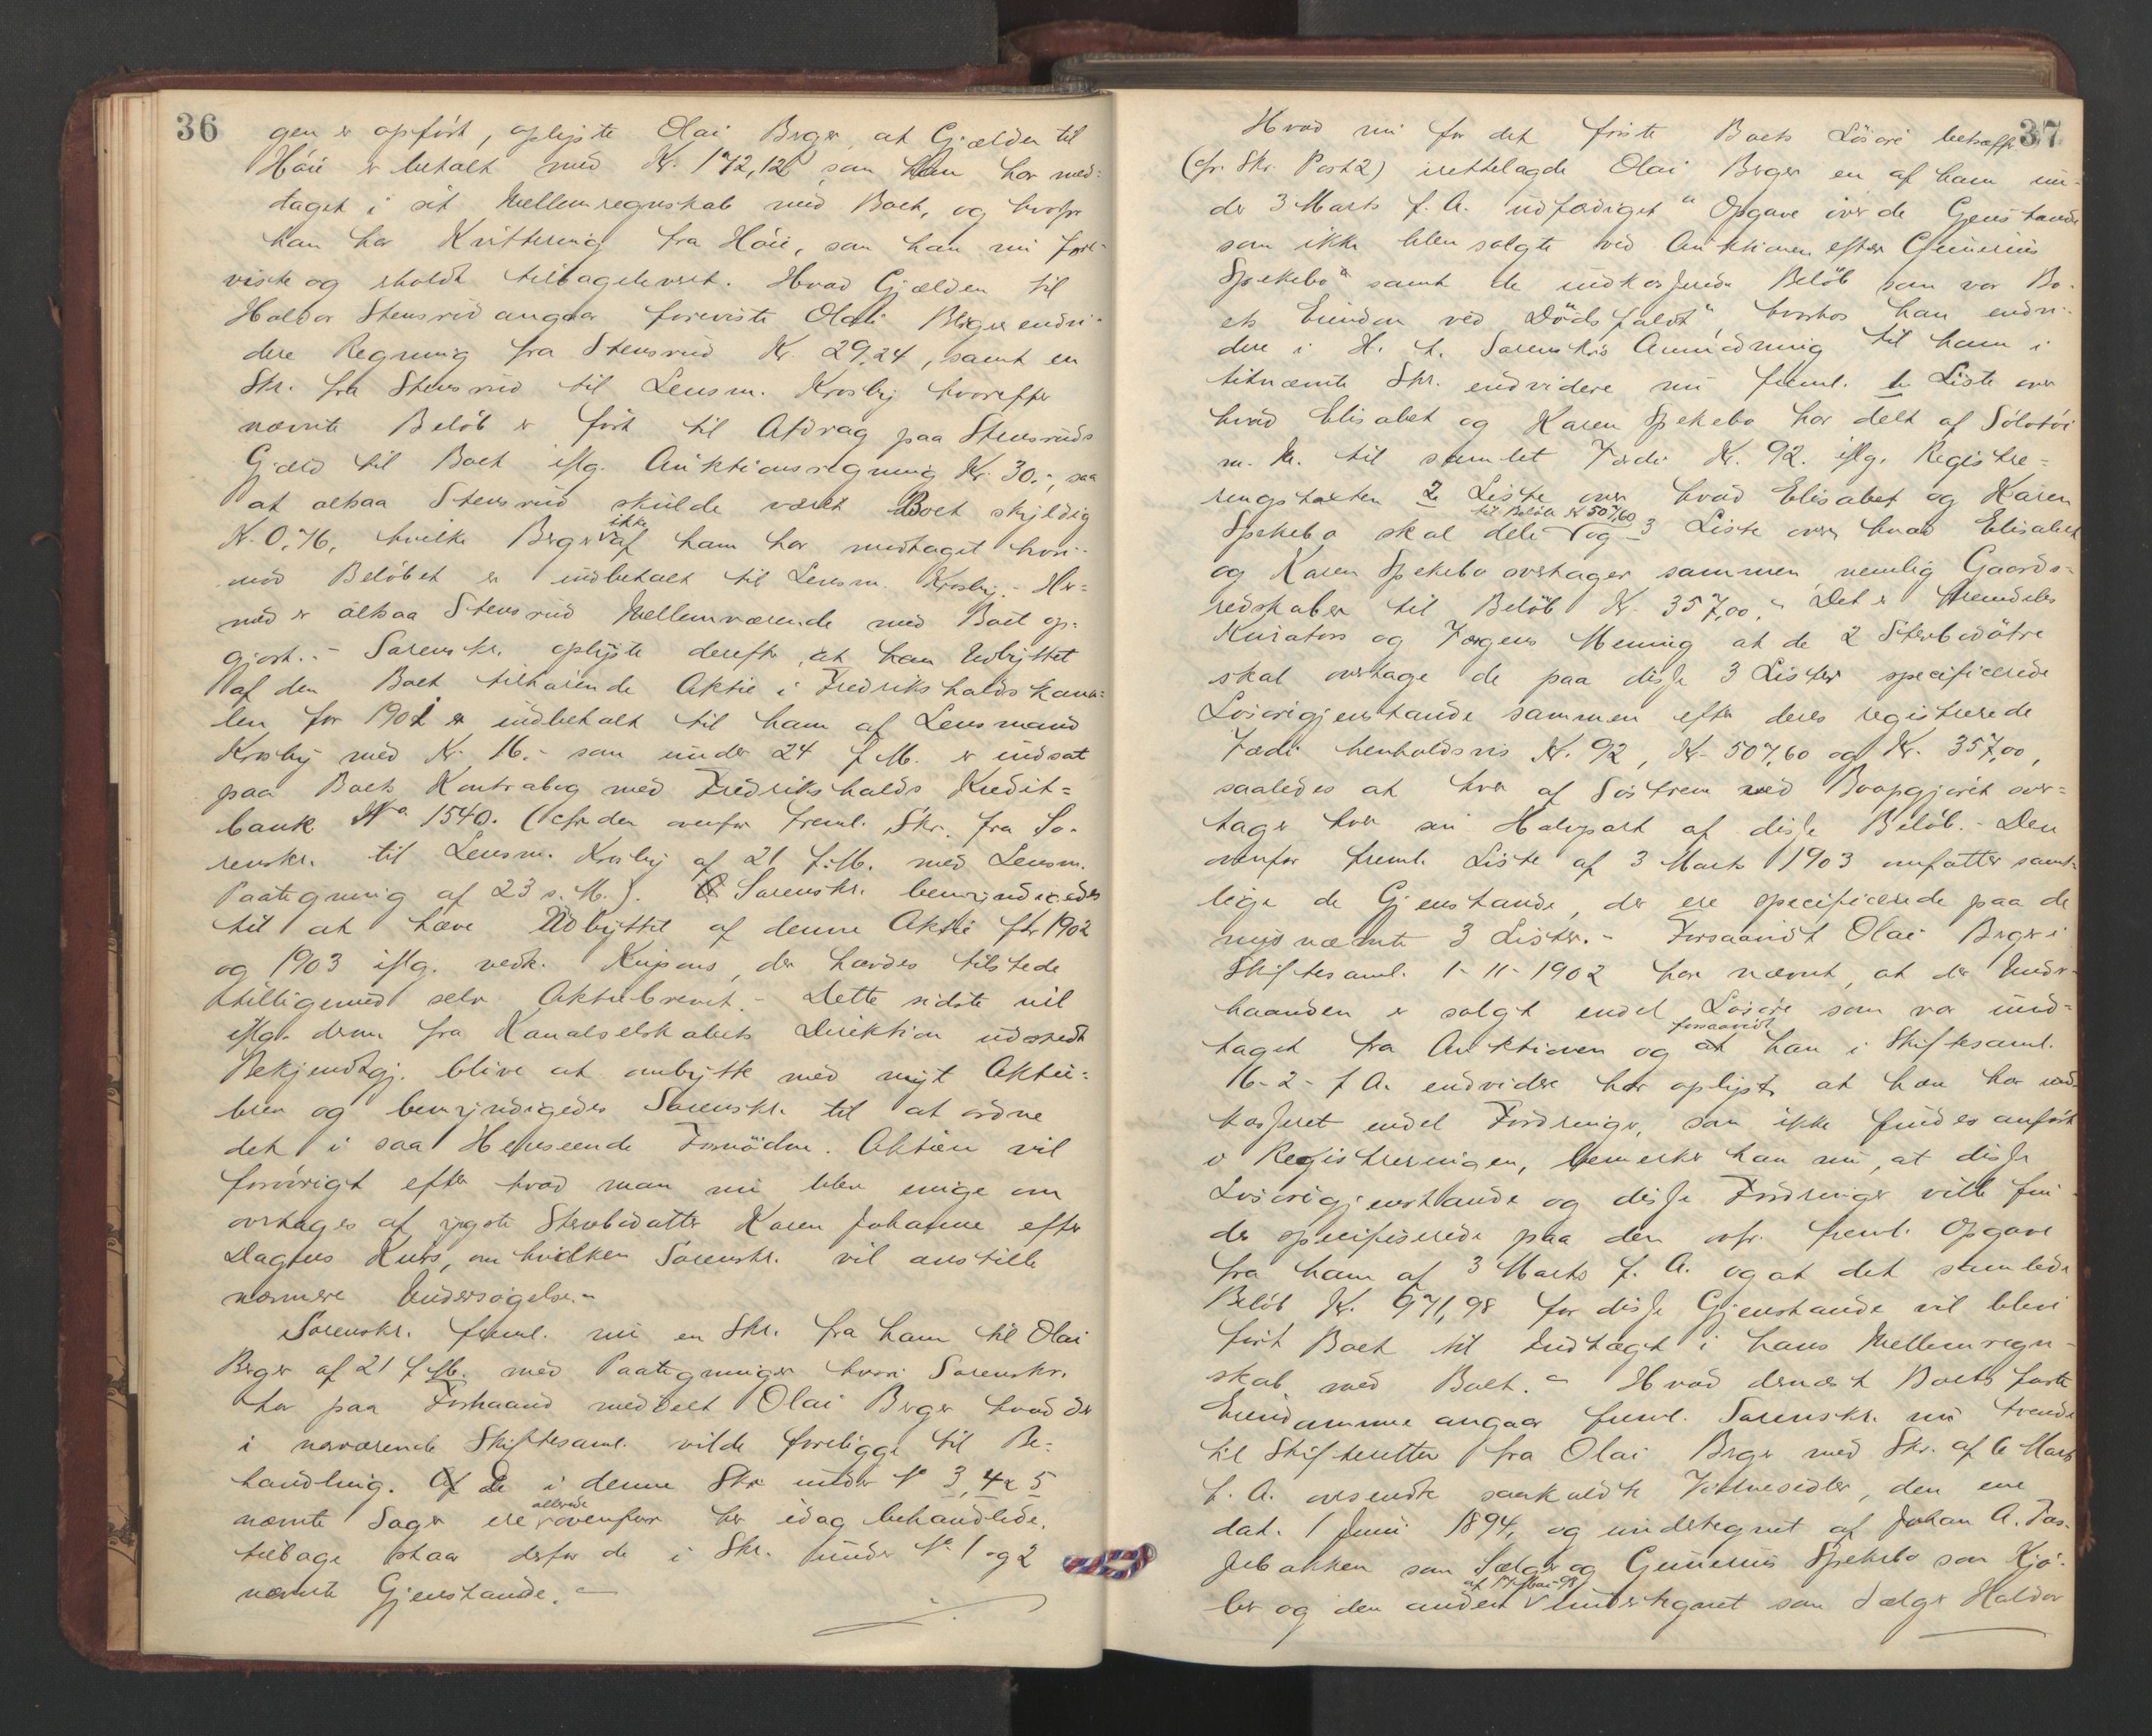 36
gen er opført, oplyste Olai Berger, at Gjælden til
Høie er betalt med Kr. 172,12, som han har med-
taget i sit Mellemregnskab med Boet, og hvorfor
han har Kvittering fra Høie, som han nu fore-
viste og erholdt tilbageleveret. Hvad Gjælden til
Haldor Stensrud angaar foreviste Olai Berger endvi-
dere Regning fra Stensrud Kr. 29,24, samt en
Skr. fra Stensrud til Lensm. Krosby hvorefter
nævnte Beløb er ført til Afdrag paa Stensruds
Gjæld til Boet iflg. Auktionsregning Kr. 30.-, saa
at altsaa Stensrud skulde været Boet skyldig
Kr. 0,76, hvilke Berger ikke af ham har modtaget hvori-
mod Beløbet er indbetalt til Lensm. Krosby.- Her-
med er altsaa Stensrud Mellemværende med Boet op-
gjort.- Sorenskr. oplyste derefter, at han Udbyttet
af den Boet tilhørende Aktie i Fredrikshaldskana-
len for 1901 er indbetalt til ham af Lensmand
Krosby med Kr. 16.- som under 24 f. M. er indsat
paa Boets Kontrabog med Fredrikshalds Kredit-
bank No 1540. (cfr den ovenfor freml. Skr. fra So-
renskr. til Lensm. Krosby af 21 f. M. med Lensm.
Paategning af 23 s. M.). Sorenskr. bemyndigedes
til at hæve Udbyttet af denne Aktie for 1902
og 1903 iflg. vedk. Kupons, der havdes tilstede
tilligemed selve Aktiebrevet.- Dette sidste vil
iflg. denne fra Kanalselskabets Direktion udstedt
Bekjendtgj. blive at ombytte med nyt Aktie-
brev og bemyndigedes Sorenskr. til at ordne
det i saa Henseende Fornødne. Aktien vil
forøvrigt efter hvad man nu blev enige om
overtages af yngste Sterbodatter Karen Johanne efter
Dagens Kurs, om hvilken Sorenskr. vil anstille
nærmere Undersøgelse.-
Sorenskr. freml. nu en Skr. fra ham til Olai
Berger af 21 f. M. med Paategninger hvori Sorenskr.
har paa Forhaand meddelt Olai Berger hvad der
i nærværende Skiftesaml. vilde foreligge til Be-
handling. Af de i denne Skr under No 3, 4 & 5
nævnte Sager ere allerede ovenfor her idag behandlede,
tilbage staar derfor de i Skr. under No. 1 og 2
nævnte Gjenstande.-
37
Hvad nu for det første Boets Løsøre betræffer
(cfr. Skr. Post 2) irettelagde Olai Berger en af ham un-
der 3 Marts f. A. udfærdiget "Opgave over de Gjenstande
som ikke blev solgte ved Auktionen efter Gunerius
Spekebo" samt de indkasserede Beløb som var Bo-
ets Eiendom ved Dødsfaldet", hvorhos han endvi-
dere i H. t. Sorenskrs Anmodning til ham i
titnævnte Skr. endvidere nu freml. 1 Liste over
hvad Elisabet og Karen Spekebo har delt af Sølvtøi
m. M. til samlet Værdi Kr. 92. iflg. Registre-
ringstaxten 2 Liste over hvad Elisabet og Karen
Spekebo skal dele til Beløb Kr 507,60 og 3 Liste over hvad Elisabet
og Karen Spekebo overtager sammen, nemlig Gaards-
redskaber til Beløb Kr. 357,00.- Det er fremdeles
Kurators og Værgens Mening at de 2 Sterbodøtre
skal overtage de paa disse 3 Lister specificerede
Løsøregjenstande sammen efter deres registrerede
Værdi henholdsvis Kr. 92, Kr. 507,60 og Kr. 357,00,
saaledes at hver af Søstrene ved Boopgjøret over-
tager hver sin Halvpart af disse Beløb.- Den
ovenfor freml. Liste af 3 Marts 1903 omfatter samt-
lige de Gjenstande, der ere specificerede paa de
nysnævnte 3 Lister.- Forsaavidt Olai Berger i
Skiftesaml. 1-11-1902 har nævnt, at der Under-
haanden er solgt endel Løsøre som var und-
taget fra Auktionen og forsaavidt han i Skiftesaml.
16-2- f. A. endvidere har oplyst, at han har ind-
kasseret endel Fordringer, som ikke findes anført
i Registreringen, bemerker han nu, at disse
Løsøregjenstande og disse Fordringer ville fin-
des specificerede paa den ovfr. freml. Opgave
fra ham af 3 Marts f. A. og at det samlede
Beløb Kr. 971,98 for disse Gjenstande vil blive
ført Boet til Indtægt i hans Mellemregn-
skab med Boet.- Hvad dernæst Boets faste
Eiendomme angaar freml. Sorenskr. nu tvende
til Skifteretten fra Olai Berger med Skr. af 6 Marts
f. A. oversendte saakaldte Vidnesedler, den ene
dat. 1 Juni 1894, og undertegnet af Johan A. Fos-
sebakken som Sælger og Gunerius Spekebo som Kjø-
ber og den anden af 17 Mai 98 undertegnet som Sælger Haldor